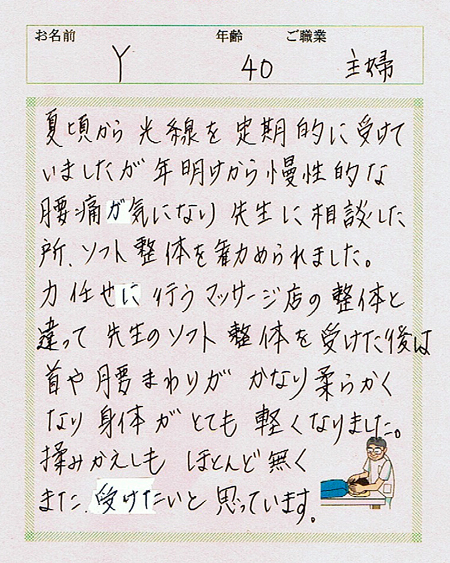 お名前 年齢 ご職業
Y 40 主婦
夏頃から光線を定期的に受けて
いましたが年明けから慢性的な
腰痛が気になり先生に相談した
所、ソフト整体を勧められました。
力任せに行うマッサージ店の整体と
違って先生のソフト整体を受けた後は
首や腰まわりがかなり柔らかく
なり身体がとても軽くなりました。
揉みかえしもほとんど無く
また、受けたいと思っています。